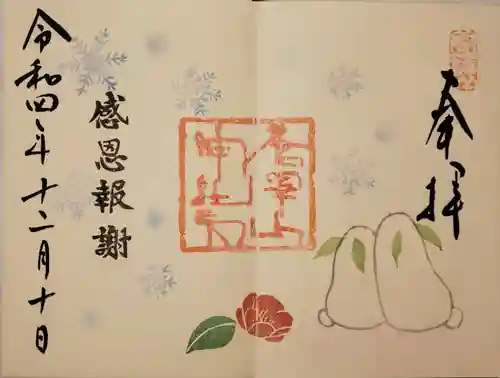 奉拝
感恩報謝
令和四年十二月十日